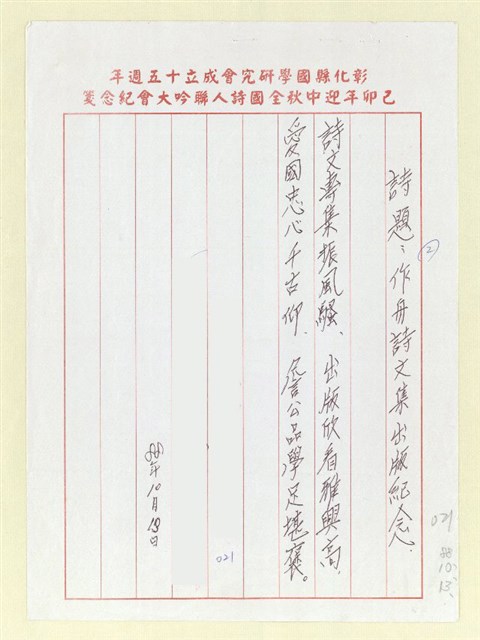 彰化縣國學研究會成立十五週年
己卯年迎中秋全國詩人聯吟大會紀念箋
②
詩題：作舟詩文集出版紀念.
詩文專集振風騷、出版欣看雅興高.
愛國忠心千古仰、詹公品學足堪褒。
88年10月13日
021
021
88
10、
13、